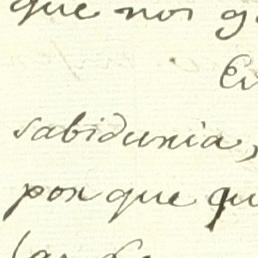 que nos g
En
sabiduria,
porque qu